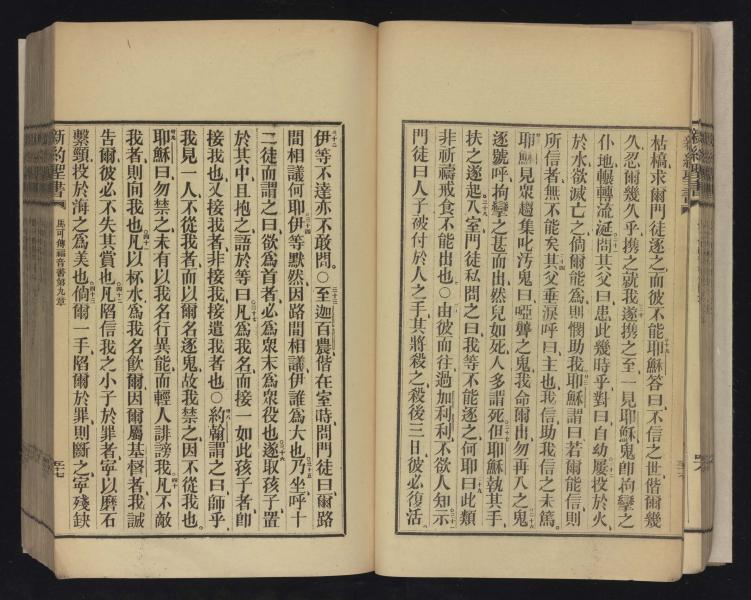 枯槁求爾門徒逐之而彼不能耶穌答曰不信之世偕爾幾
久忍爾幾久乎攜之就我遂攜之至一見耶穌鬼卽拘攣之
仆地輾轉流涎問其父曰患此幾時乎對曰自幼屢投於火
於水欲滅亡之倘爾能爲則憫助我耶穌謂曰若爾能信則
所信者無不能矣其父垂淚呼曰主也我信助我信之未篤
耶穌見衆趨集叱汚鬼曰啞聾之鬼我命爾出勿再入之鬼
逐號呼拘攣之甚而出然兒如死人多謂死但耶穌執其手
扶之遂起入室門徒私問之曰我等不能逐之何耶曰此類
非祈禱戒食不能出也○由彼而往過加利利不欲人知示
門徒曰人子被付於人之手其將殺之殺後三日彼必復活
伊等不達亦不敢問○至迦百農偕在室時問門徒曰爾路
間相議何耶伊等默然因路間相議伊誰爲大也乃坐呼十
二徒而謂之曰欲爲首者必爲衆末爲衆役也遂取孩子置
於其中且抱之語於等曰凡爲我名而接一如此孩子者卽
接我也又接我者非接我接遣我者也○約翰謂之曰師乎
我見一人不從我者而以爾名逐鬼故我禁之因不從我也
耶穌曰勿禁之未有以我名行異能而輕人誹謗我凡不敵
我者則向我也凡以杯水爲我名飲爾因爾屬基督者我誠
告爾彼必不失其賞也凡陷信我之小子於罪者寧以磨石
繫頸投於海之爲美也倘爾一手陷爾於罪則斷之寧殘缺
新約聖書 馬可傳福音書第九章 五十七